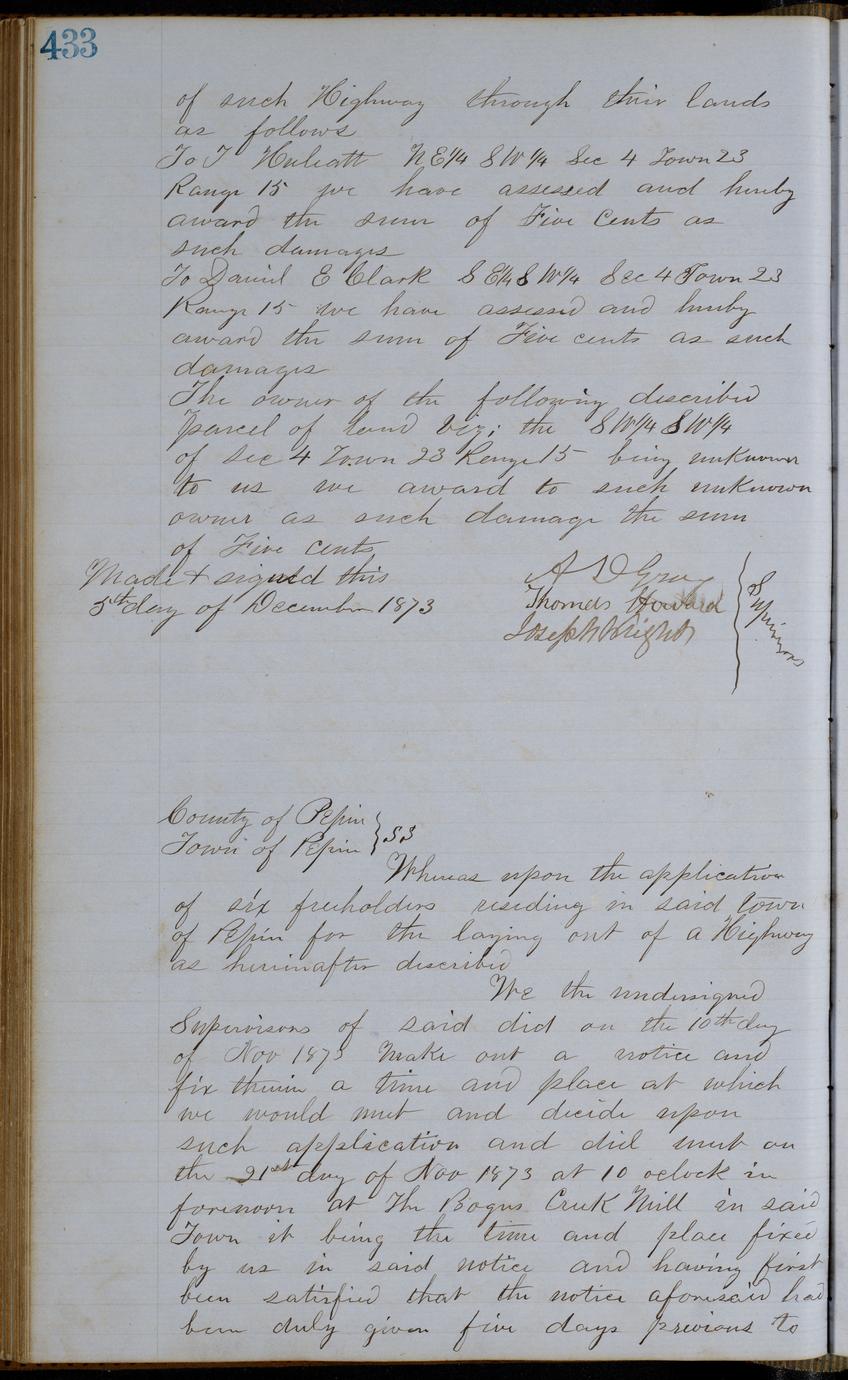 433
of such Highway through their lands
as follows
To T NE1/4 SW1/4 Sec 4 Town 23
Range 15 we have assessed and hereby
award the sum of Five Cents as
such damages
To Daniel E Clark SE1/4 SW1/4 Sec 4 Town 23
Range 15 we have assessed and hereby
award the sum of Five cents as such
damages
The owner of the following described
parcel of land viz; the SW1/4 SW1/4
of Sec 4 Town 23 Range 15 being unknown
to us we award to such unknown
owner as such damage the sum
of Five cents
Made & signed this
5th day of December 1873
A D Gray
Thomas Howard
Joseph Wright
Supervisors
County of Pepin
Town of Pepin } SS
Whereas upon the application
of six freeholders residing in said town
of Pepin for the laying out of a Highway
as hereinafter described
We the undersigned
Supervisors of said did on the 10th day
of Nov 1873 Make out a notice and
fix therein a time and place at which
we would meet and decide upon
such application and did meet on
the 21st day of Nov 1873 at 10 oclock in
forenoon at The Bogus Creek Mill in said
Town it being the time and place fixed
by us in said notice and having first
been satisfied that the notice aforesaid had
been duly given five days previous to